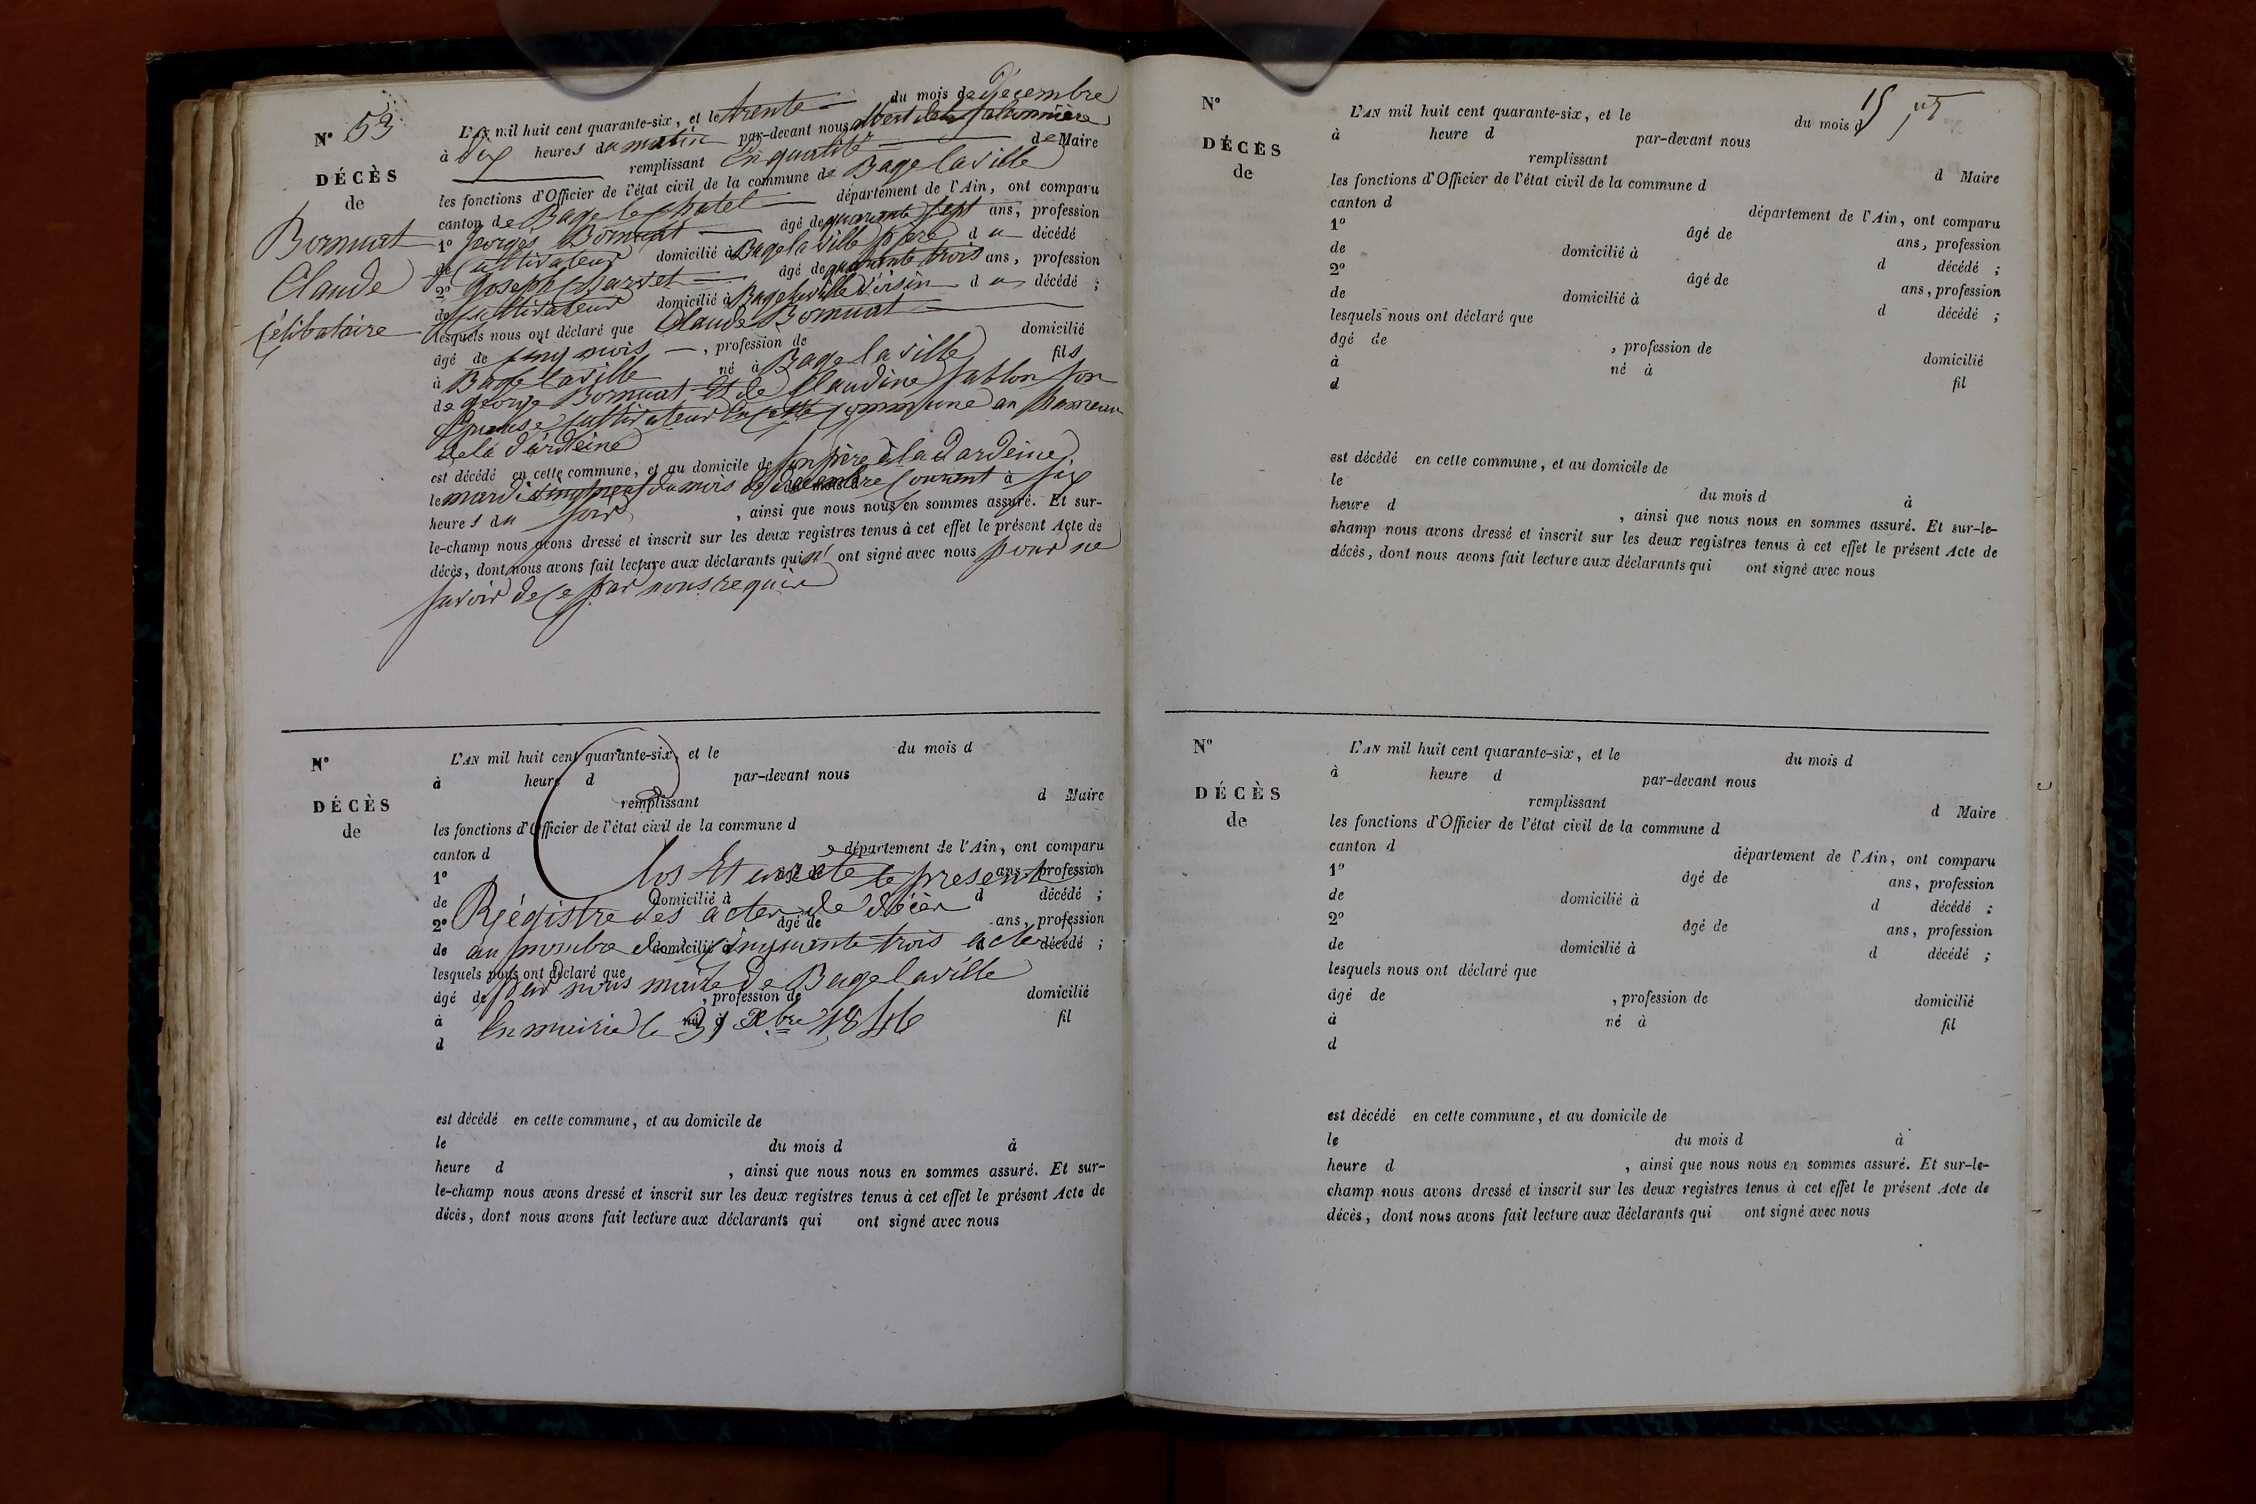 N° 53
DÉCÈS
de
Bornuat
Claude
Célibataire
L'AN mil huit cent quarante-six, et le trente du mois de Décembre
à Dix heures du matin par-devant nous albert de la
remplissant En qualité de Maire
les fonctions d'Officier de l'état civil de la commune de Bage la ville
canton de Bage le chatel département de l'Ain, ont comparu
1° Georges Bornuat âgé de quarante sept ans, profession
de Cultivateur domicilié à Bage la ville père du décédé
2° Joseph âgé de quarante trois ans, profession
de Cultivateur domicilié à Bage la ville Voisin du décédé ;
lesquels nous ont déclaré que Claude Bornuat
âgé de cinq mois , profession de domicilié
à Bage la ville né à Bage la ville fils
de George Bornuat et de Claudine Sablon son
Epouse Cultivateur En cette Commune au hameau
de la dardeine
est décédé en cette commune, et au domicile de son père à la dardeine
le mardi vingt neuf du mois de décembre Courant à six
heures du soir , ainsi que nous nous en sommes assuré. Et sur-
le-champ nous avons dressé et inscrit sur les deux registres tenus à cet effet le présent Acte de
décès, dont nous avons fait lecture aux déclarants qui n'ont signé avec nous pour ne
savoir de ce par nous requis
N°
DÉCÈS
de
L'AN mil huit cent quarante-six, et le du mois d
à heure d par-devant nous
remplissant d Maire
les fonctions d'Officier de l'état civil de la commune d
canton d département de l'Ain, ont comparu
1° âgé de ans, profession
Clos Et arrete le present
de domicilié à d décédé ;
Régistre des actes de Décès
2° âgé de ans, profession
au nombre de Cinquante trois actes
de domicilié à d décédé ;
lesquels nous ont déclaré que
par nous maire de Bage la ville
âgé de , profession de domicilié
En mairie le 31 Xbre 1846
à né à fil
d
est décédé en cette commune, et au domicile de
le du mois d à
heure d , ainsi que nous nous en sommes assuré. Et sur-
le-champ nous avons dressé et inscrit sur les deux registres tenus à cet effet le présent Acte de
décès, dont nous avons fait lecture aux déclarants qui ont signé avec nous
N°
DÉCÈS
de
L'AN mil huit cent quarante-six, et le du mois d
à heure d par-devant nous
remplissant d Maire
les fonctions d'Officier de l'état civil de la commune d
canton d département de l'Ain, ont comparu
1° âgé de ans, profession
de domicilié à d décédé ;
2° âgé de ans, profession
de domicilié à d décédé ;
lesquels nous ont déclaré que
âgé de , profession de domicilié
à né à fil
d
est décédé en cette commune, et au domicile de
le du mois d à
heure d , ainsi que nous nous en sommes assuré. Et sur-le-
champ nous avons dressé et inscrit sur les deux registres tenus à cet effet le présent Acte de
décès, dont nous avons fait lecture aux déclarants qui ont signé avec nous
N°
DÉCÈS
de
L'AN mil huit cent quarante-six, et le du mois d
à heure d par-devant nous
remplissant d Maire
les fonctions d'Officier de l'état civil de la commune d
canton d département de l'Ain, ont comparu
1° âgé de ans, profession
de domicilié à d décédé ;
2° âgé de ans, profession
de domicilié à d décédé ;
lesquels nous ont déclaré que
âgé de , profession de domicilié
à né à fil
d
est décédé en cette commune, et au domicile de
le du mois d à
heure d , ainsi que nous nous en sommes assuré. Et sur-le-
champ nous avons dressé et inscrit sur les deux registres tenus à cet effet le présent Acte de
décès, dont nous avons fait lecture aux déclarants qui ont signé avec nous